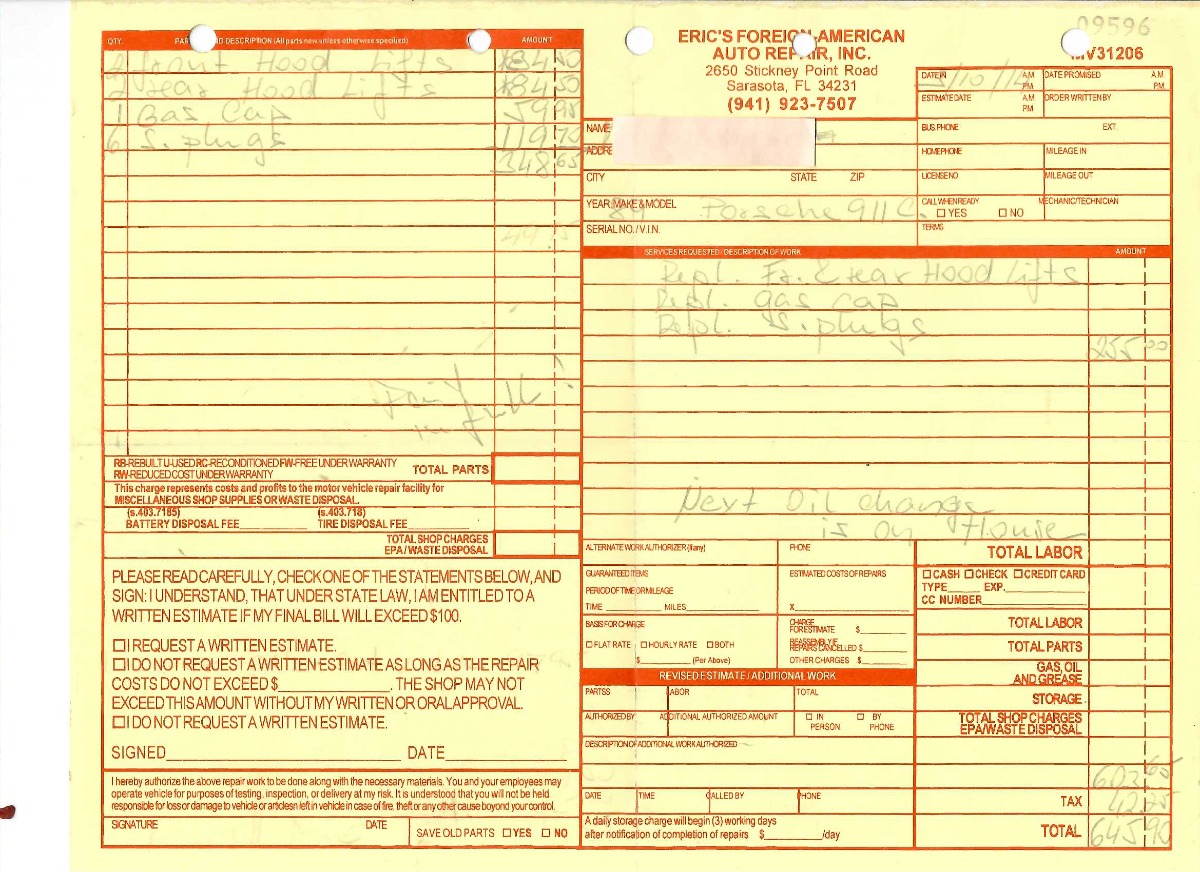 QTY. PART AND DESCRIPTION (All parts new unless otherwise specified) AMOUNT
2 front Hood Lifts 84 50
2 rear Hood Lifts 84 50
1 Gas Cap 59 95
6 S. plugs 119 70
348 65
Paid in full!
RB-REBUILT U-USED RC-RECONDITIONED FW-FREE UNDER WARRANTY
RW-REDUCED COST UNDER WARRANTY
TOTAL PARTS
This charge represents costs and profits to the motor vehicle repair facility for
MISCELLANEOUS SHOP SUPPLIES OR WASTE DISPOSAL.
(s.403.7185) (s.403.718)
BATTERY DISPOSAL FEE TIRE DISPOSAL FEE
TOTAL SHOP CHARGES
EPA/WASTE DISPOSAL
PLEASE READ CAREFULLY, CHECK ONE OF THE STATEMENTS BELOW, AND
SIGN: I UNDERSTAND, THAT UNDER STATE LAW, I AM ENTITLED TO A
WRITTEN ESTIMATE IF MY FINAL BILL WILL EXCEED $100.
☐ I REQUEST A WRITTEN ESTIMATE.
☐ I DO NOT REQUEST A WRITTEN ESTIMATE AS LONG AS THE REPAIR
COSTS DO NOT EXCEED $ . THE SHOP MAY NOT
EXCEED THIS AMOUNT WITHOUT MY WRITTEN OR ORAL APPROVAL.
☐ I DO NOT REQUEST A WRITTEN ESTIMATE.
SIGNED DATE
I hereby authorize the above repair work to be done along with the necessary materials. You and your employees may
operate vehicle for purposes of testing, inspection, or delivery at my risk. It is understood that you will not be held
responsible for loss or damage to vehicle or articles left in vehicle in case of fire, theft or any other cause beyond your control.
SIGNATURE DATE
SAVE OLD PARTS ☐ YES ☐ NO
ERIC'S FOREIGN-AMERICAN
AUTO REPAIR, INC.
2650 Stickney Point Road
Sarasota, FL 34231
(941) 923-7507
09596
MV31206
DATE IN /10/ A.M. P.M. DATE PROMISED A.M. P.M.
ESTIMATE DATE A.M. P.M. ORDER WRITTEN BY
NAME
BUS. PHONE EXT.
ADDRE
HOME PHONE MILEAGE IN
CITY STATE ZIP
LICENSE NO MILEAGE OUT
YEAR, MAKE & MODEL 89 Porsche 911 C.
CALL WHEN READY ☐ YES ☐ NO MECHANIC/TECHNICIAN
SERIAL NO./V.I.N.
TERMS
SERVICES REQUESTED / DESCRIPTION OF WORK AMOUNT
Repl. Fr. & rear Hood Lifts
Repl. gas cap
Repl. S. plugs
255 00
Next Oil change
is on House
ALTERNATE WORK AUTHORIZER (if any) PHONE
TOTAL LABOR
GUARANTEED ITEMS ESTIMATED COSTS OF REPAIRS
PERIOD OF TIME OR MILEAGE
TIME MILES X
☐ CASH ☐ CHECK ☐ CREDIT CARD
TYPE EXP.
CC NUMBER
BASIS FOR CHARGE
☐ FLAT RATE ☐ HOURLY RATE ☐ BOTH
$ (Per Above)
CHARGE FOR ESTIMATE $
REASSEMBLY IF REPAIRS CANCELLED $
OTHER CHARGES $
TOTAL LABOR
TOTAL PARTS
GAS, OIL
AND GREASE
STORAGE
TOTAL SHOP CHARGES
EPA/WASTE DISPOSAL
REVISED ESTIMATE / ADDITIONAL WORK
PARTSS LABOR TOTAL
AUTHORIZED BY ADDITIONAL AUTHORIZED AMOUNT ☐ IN PERSON ☐ BY PHONE
DESCRIPTION OF ADDITIONAL WORK AUTHORIZED
603 65
DATE TIME CALLED BY PHONE
TAX 42 25
A daily storage charge will begin (3) working days
after notification of completion of repairs $ /day
TOTAL 645 90